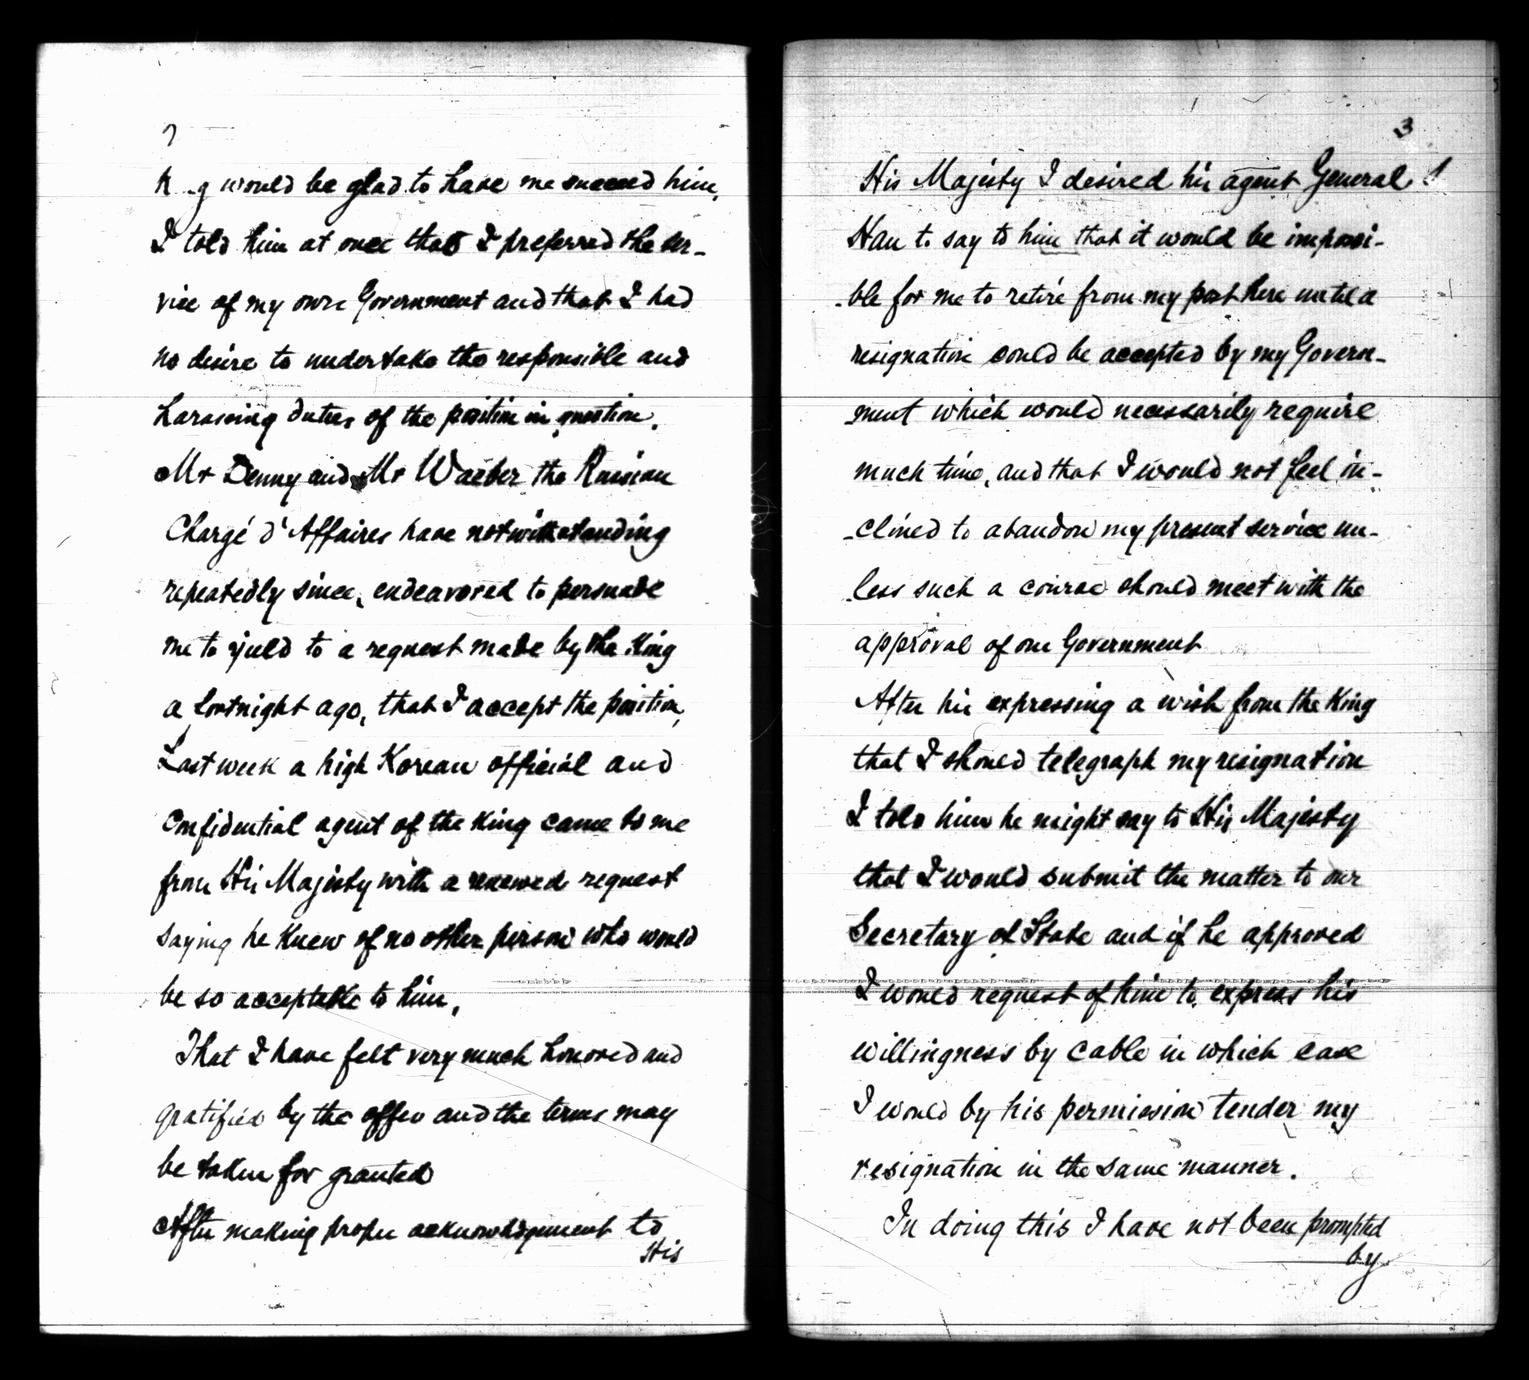 2
K..g would be glad to have me succeed him,
I told him at once that I preferred the ser-
vice of my own Government and that I had
no desire to undertake the responsible and
harassing duties of the position in question.
Mr Denny and Mr Waeber the Russian
Chargé d'Affaires have notwithstanding
repeatedly since, endeavored to persuade
me to yield to a request made by the King
a fortnight ago, that I accept the position,
Last week a high Korean official and
confidential agent of the King came to me
from His Majesty with a renewed request
saying he knew of no other person who would
be so acceptable to him.
That I have felt very much honored and
gratified by the offer and the terms may
be taken for granted
After making proper acknowledgement to
His
3
His Majesty I desired his agent General
Han to say to him that it would be impossi-
ble for me to retire from my post here until a
resignation could be accepted by my Govern-
ment which would necessarily require
much time, and that I would not feel in-
clined to abandon my present service un-
less such a course should meet with the
approval of our Government
After his expressing a wish from the King
that I should telegraph my resignation
I told him he might say to His Majesty
that I would submit the matter to our
Secretary of State and if he approved
I would request of him to express his
willingness by cable in which case
I would by his permission tender my
resignation in the same manner.
In doing this I have not been prompted
by